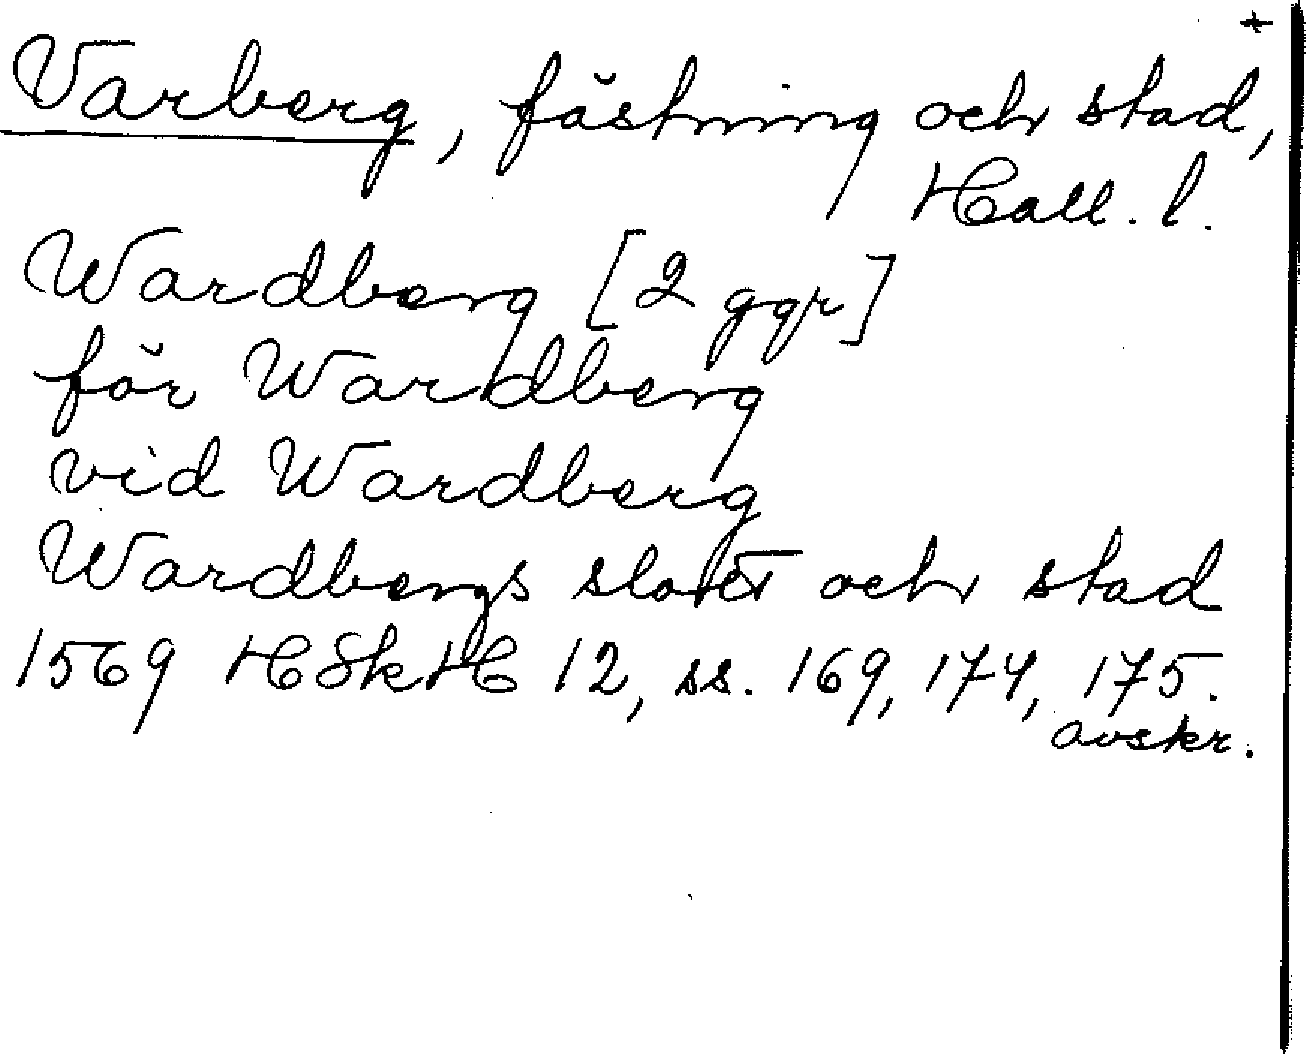 +
Varberg, fästning och stad,
Hall. l.
Wardberg [2 ggr]
för Wardberg
vid Wardberg
Wardbergs slotet och stad
1569 HSkH 12, ss. 169, 174, 175.
avskr.